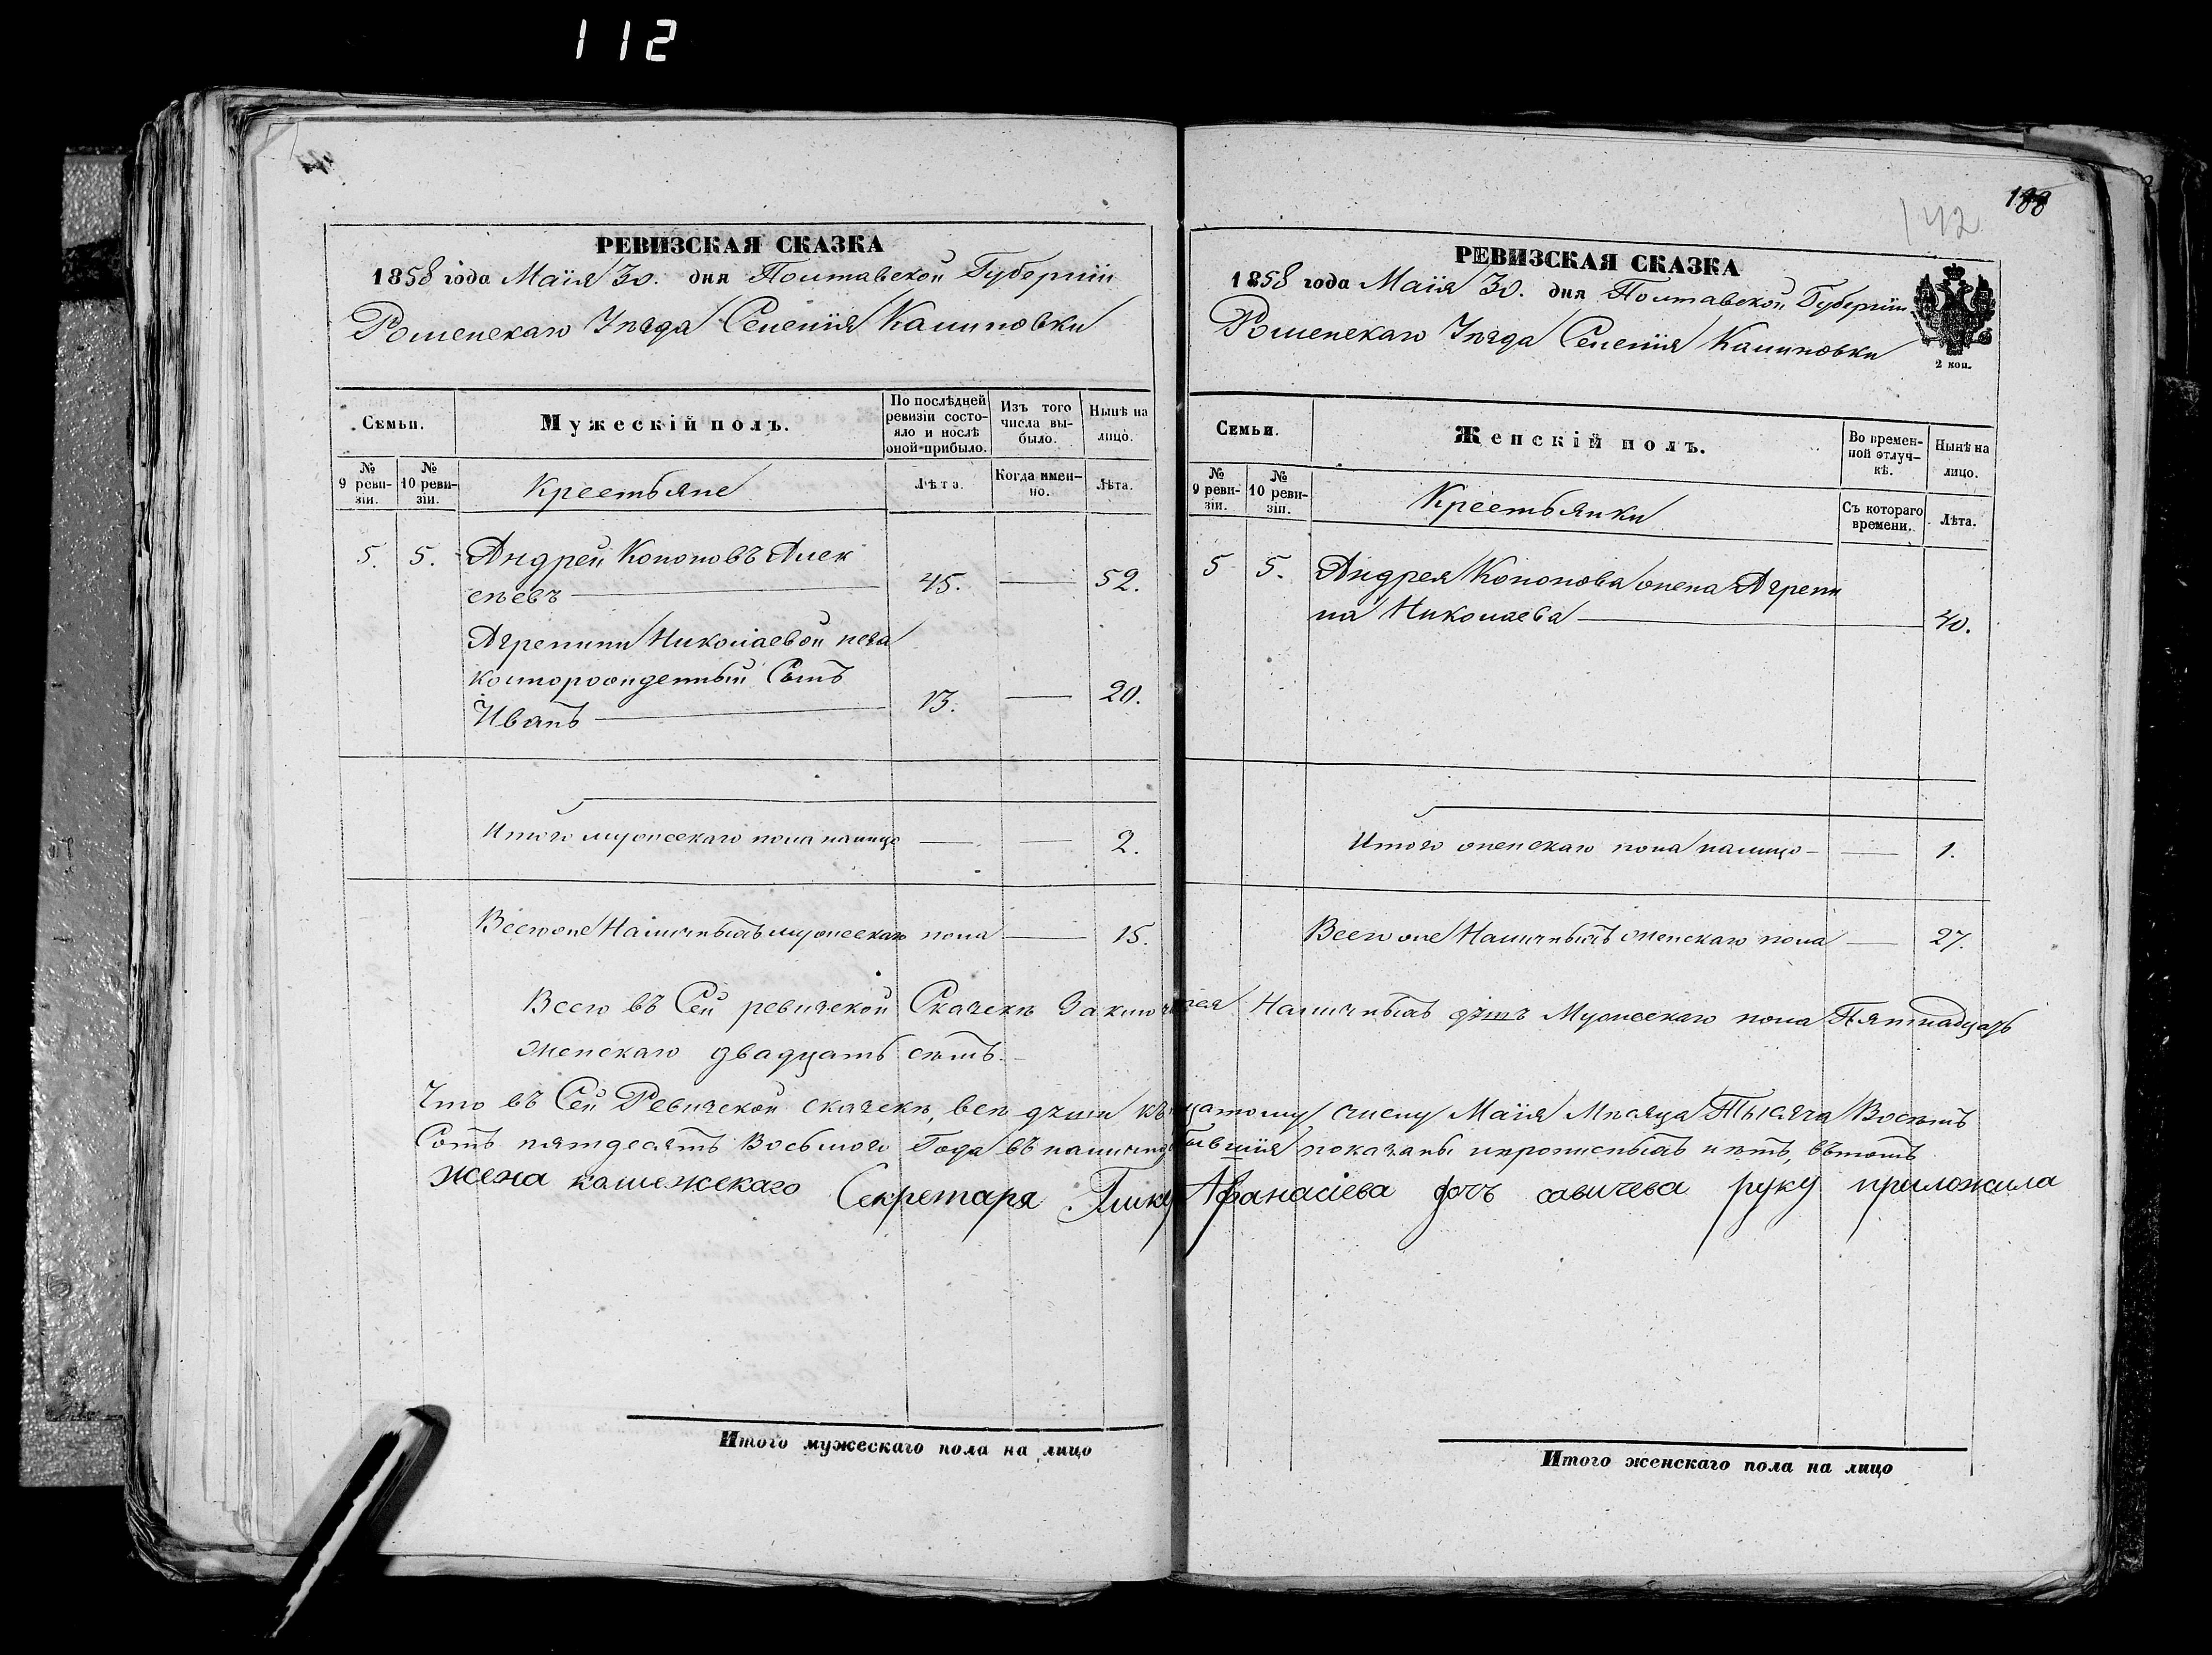 112
РЕВИЗСКАЯ СКАЗКА
1858 года Маія 30. дня Полтавской Губерніи
Роменскаго Уѣзда Селенія Калиновки
Семьи.
Мужескій полъ.
По послѣдней ревизіи состояло и послѣ оной прибыло.
Изъ того числа выбыло.
Нынѣ на лицо.
№ 9 ревизіи.
№ 10 ревизіи.
Крестьяне
Лѣта.
Когда именно.
Лѣта.
5. 5. Андрей Кононовъ Алек
сѣевъ — 45. — 52.
Агрепины Николаевой неза
коннорожденный Сынъ
Иванъ — 13. — 20.
Итого мужескаго пола налицо — — 2.
Всего же Наличныхъ мужескаго пола — 15.
188
142
РЕВИЗСКАЯ СКАЗКА
1858 года Маія 30. дня Полтавской Губерніи
Роменскаго Уѣзда Селенія Калиновки
2 коп.
Семьи.
Женскій полъ.
Во временной отлучкѣ.
Нынѣ на лицо.
№ 9 ревизіи.
№ 10 ревизіи.
Крестьянки
Съ котораго времени.
Лѣта.
5 5. Андрея Кононова жена Агрепи
на Николаева — 40.
Итого женскаго пола налицо — — 1.
Всего же Наличныхъ женскаго пола — 27.
Всего въ Сей ревизской Сказскѣ Заключается Наличныхъ душъ Мужескаго пола Пятнадцать
Женскаго двадцать семь.
Что въ Сей Ревизской сказскѣ, всѣ души къ цатому числу Маія Мѣсяца Тысяча Восемь
Сотъ пятдесятъ Восьмого Года въ наличнос бывшія показаны ипрописныхъ нѣтъ, вътомъ
жена колежскаго Секретаря Афанасіева дочь савичева руку приложила
Итого мужескаго пола на лицо
Итого женскаго пола на лицо